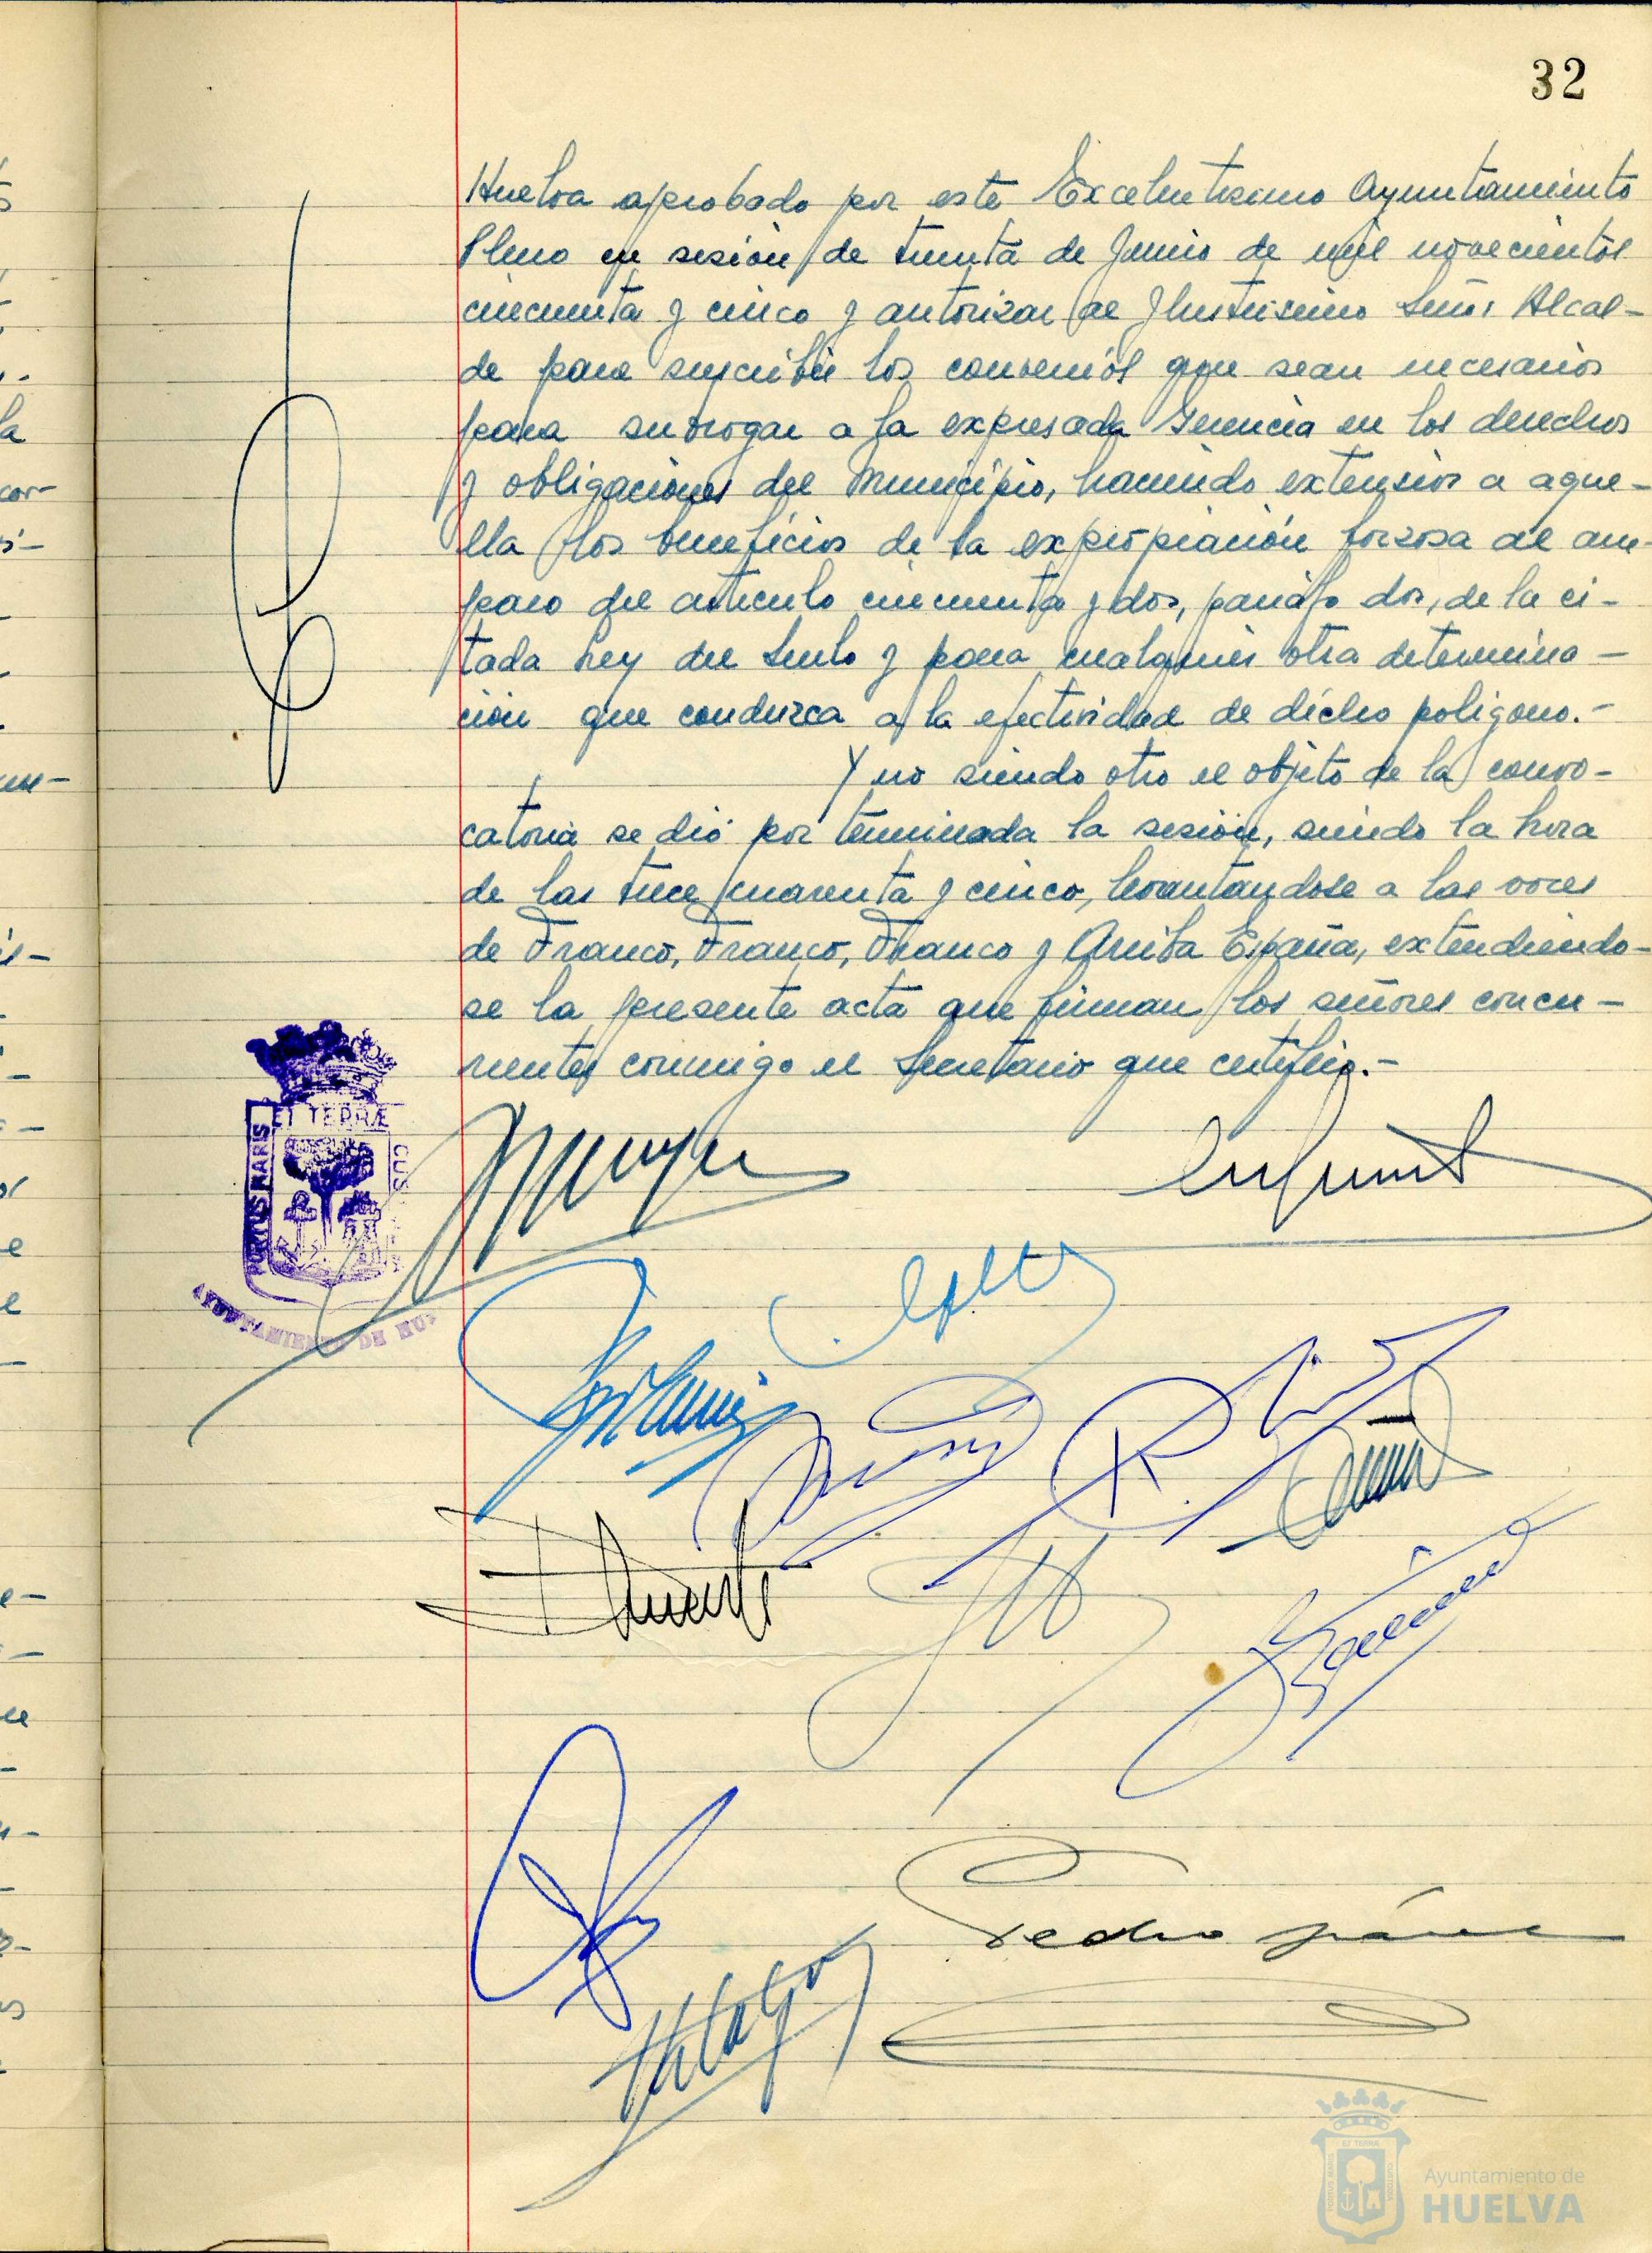 32
Huelva aprobado por este Excelentísimo Ayuntamiento
Pleno en sesión de treinta de Junio de mil novecientos
cincuenta y cinco y autorizar al Ilustrísimo Señor Alcal-
de para suscribir los convenios que sean necesarios
para subrogar a la expresada Gerencia en los derechos
y obligaciones del Municipio, haciendo extensivos a aque-
lla los beneficios de la expropiación forzosa al am-
paro del artículo cincuenta y dos, párrafo dos, de la ci-
tada Ley del Suelo y para cualquier otra determina-
ción que conduzca a la efectividad de dicho polígono.-
Y no siendo otro el objeto de la convo-
catoria se dió por terminada la sesión, siendo la hora
de las trece cuarenta y cinco, levantandose a las voces
de Franco, Franco, Franco y Arriba España, extendiendo-
se la presente acta que firman los señores concu-
rrentes conmigo el Secretario que certifico.-
PORTUS MARIS ET TERRÆ CUS
AYUNTAMIENTO DE HU
Pedro
Hidalgo
Ayuntamiento de
HUELVA